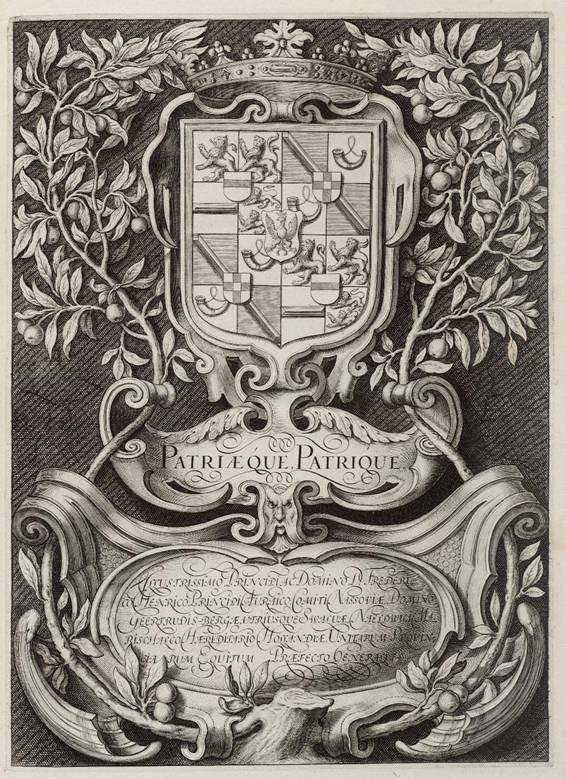 PATRIÆQUE, PATRIQUE.
ILLUSTRISSIMO PRINCIPI AC DOMINO D. FREDERI-
CO HENRICO PRINCIPI AURAICO COMITI NASSOVIÆ DOMINO
GEERTRUDIS-BERGÆ, UTRIUSQUE SWALUÆ NAELDWICI, MA-
RISCHALCO HÆREDITARIO HOLANDIÆ, UNITARUM PROVIN-
CIARUM EQUITUM PRÆFECTO GENERALI